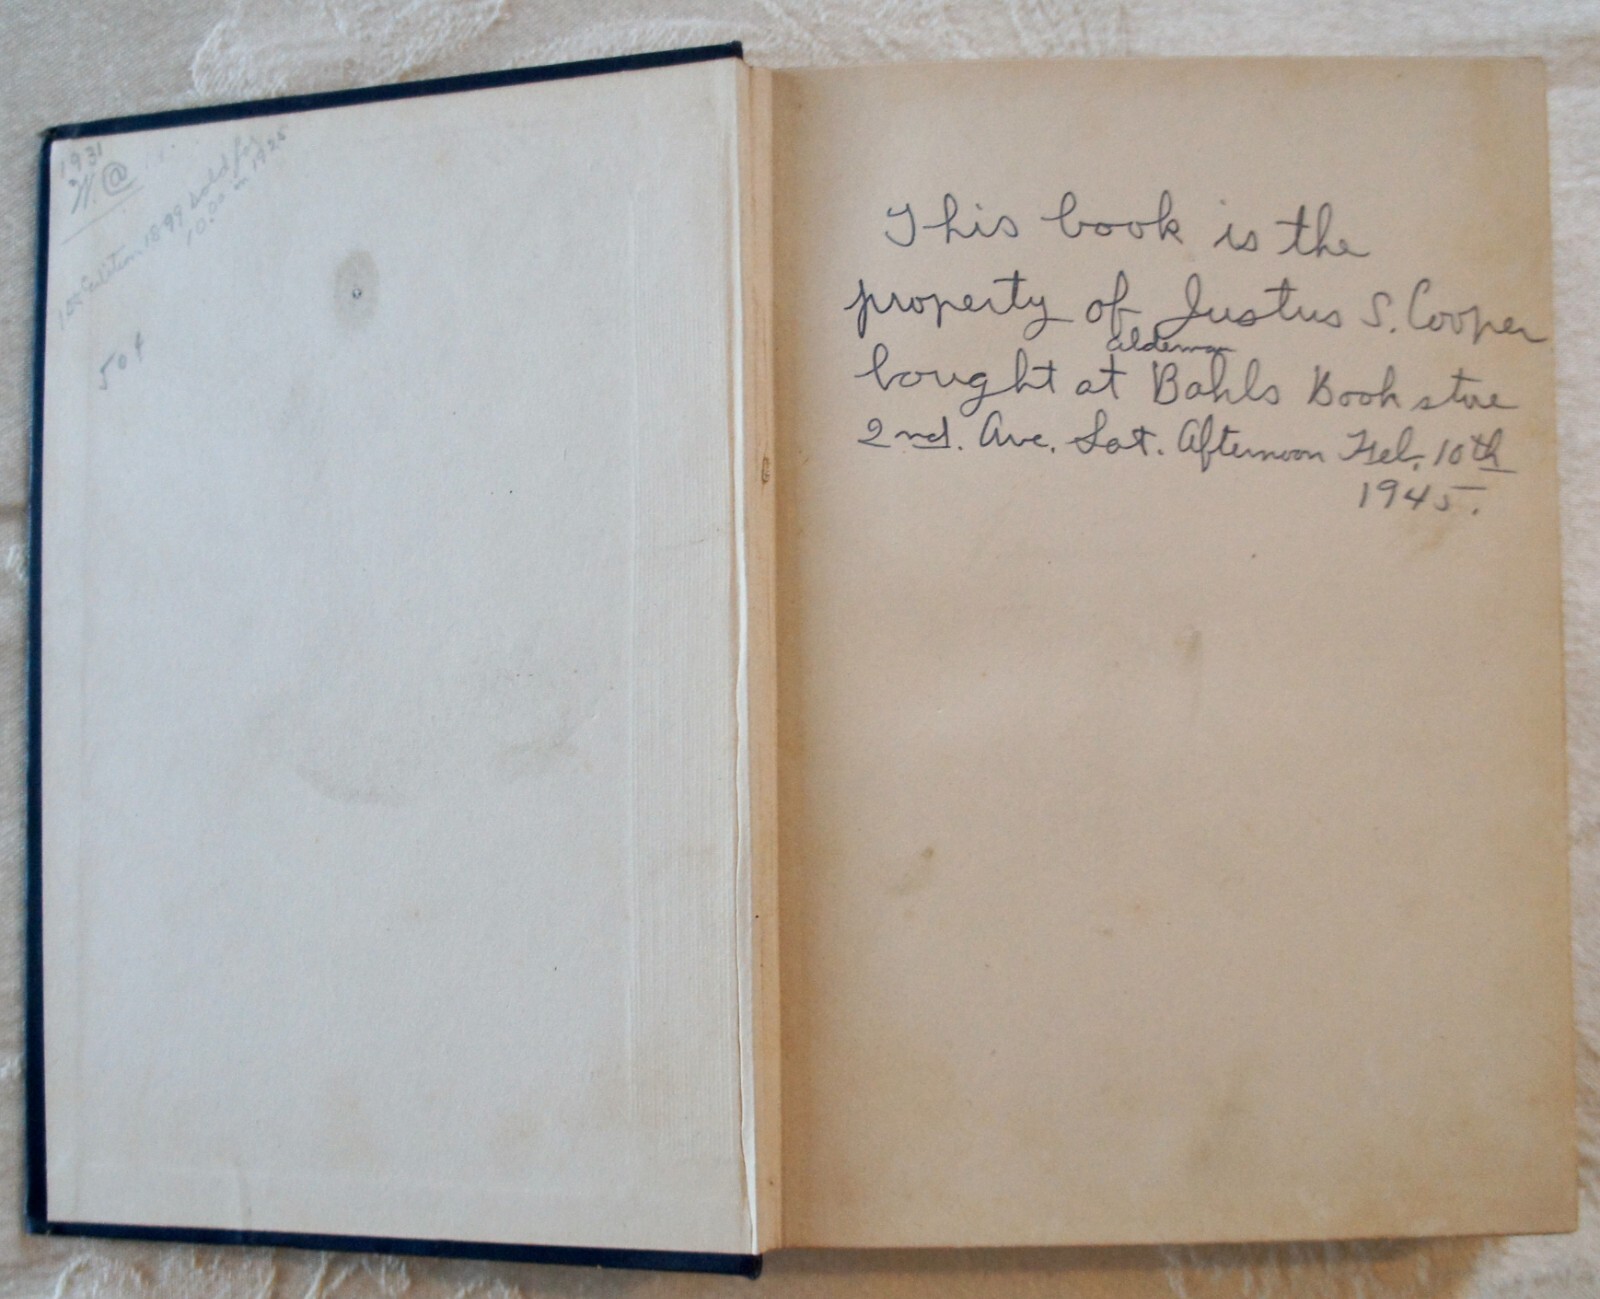 1931
W. @
1st Edition 1899 sold for
10.00 in 1925
50¢
This book is the
property of Justus S. Cooper
aldeman
bought at Bahls Book store
2nd. Ave. Sat. Afternoon Feb. 10th
1945.